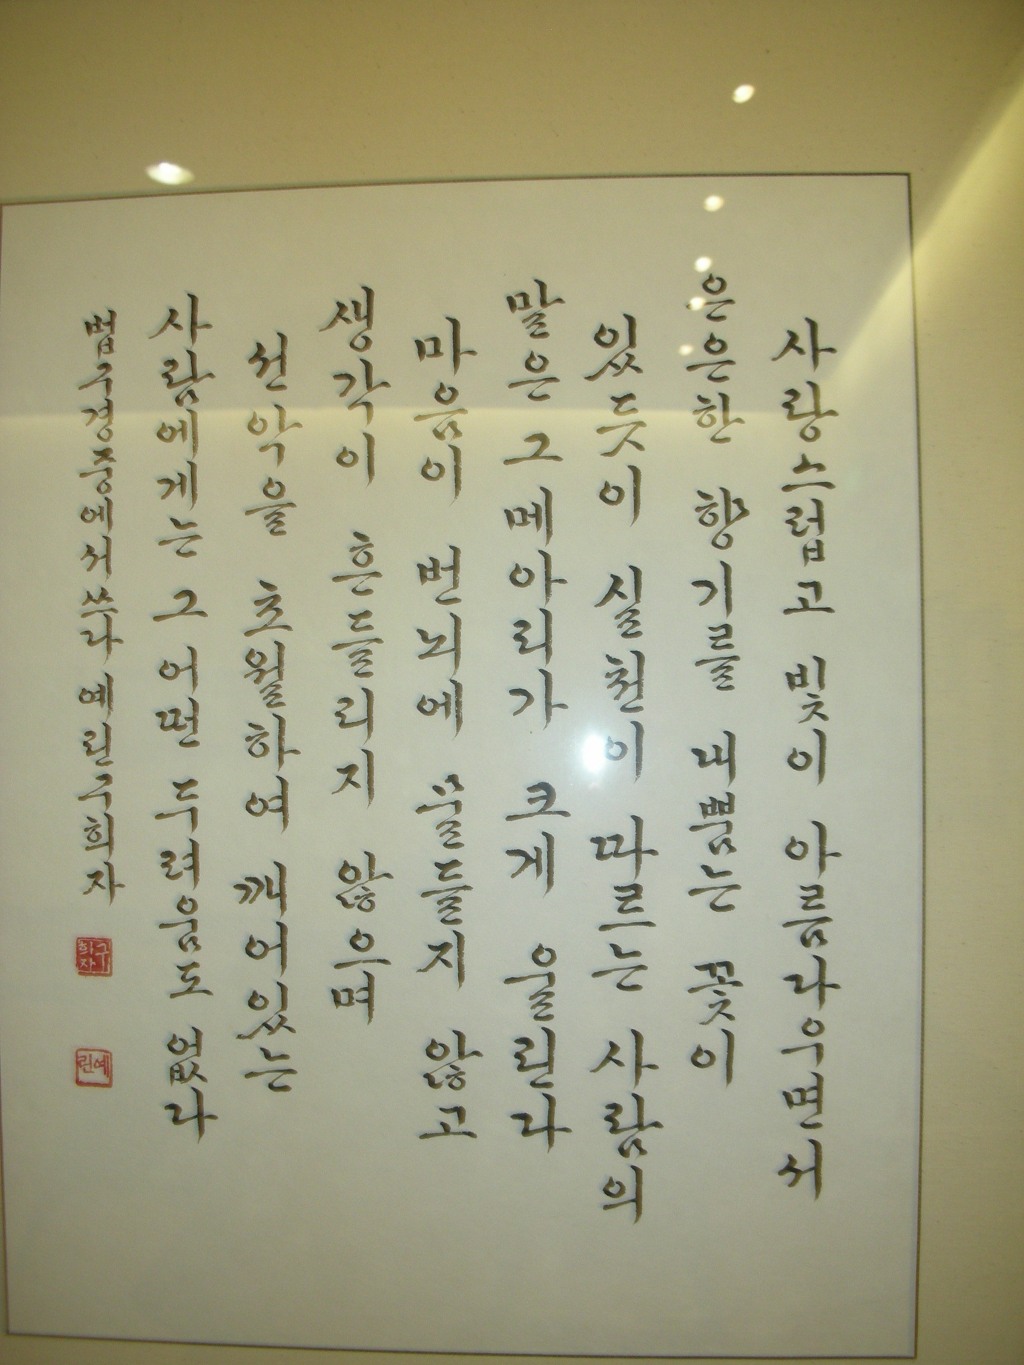 사랑스럽고 빛이 아름다우면서
은은한 향기를 내뿜는 꽃이
있듯이 실천이 따르는 사람의
말은 그 메아리가 크게 울린다
마음이 번뇌에 물들지 않고
생각이 흔들리지 않으며
선악을 초월하여 깨어있는
사람에게는 그 어떤 두려움도 없다
법구경중에서 쓰다 예린 구희자
구희자
예린